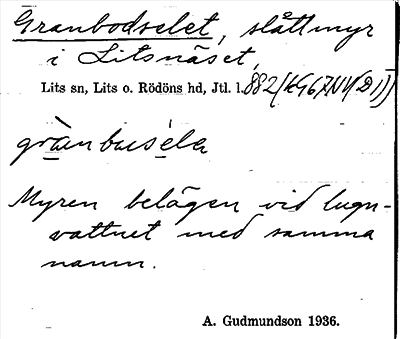 Granbodselet, slåttmyr
i Litsnäset,
Lits sn, Lits o. Rödöns hd, Jtl. l. 882
grànbusela
Myren belägen vid lugn-
vattnet med samma
namn.
A. Gudmundson 1936.